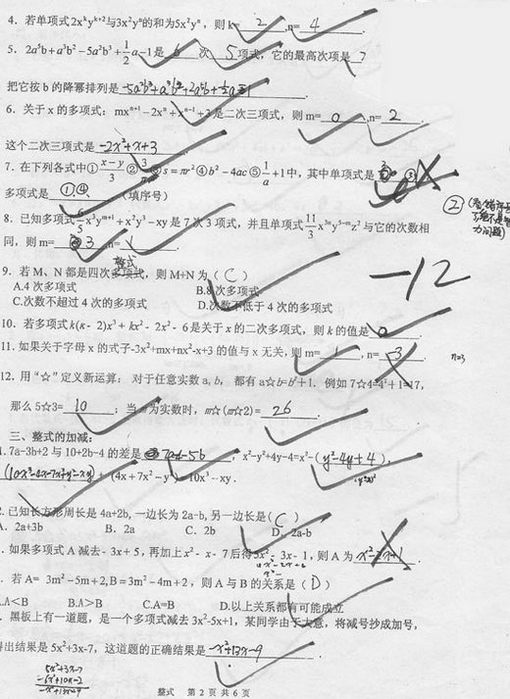 4. 若单项式2xᵏyᵏ⁺²与3x²yⁿ的和为5x²yⁿ，则k= 2 ,n= 4 .
5. 2a⁵b+a³b²-5a²b³+½a-1是 6 次 5 项式，它的最高次项是
把它按b的降幂排列是
6. 关于x的多项式：mxⁿ⁺¹-2xⁿ+xⁿ⁻¹+3是二次三项式，则m= 0 ,n= 2 .
这个二次三项式是 -2x²+x+3 .
7. 在下列各式中① (x-y)/3 ② ③s=πr²④b²-4ac⑤ 1/a +1中，其中单项式是
多项式是 ①④、 （填序号）
8. 已知多项式 x³yᵐ⁺¹+x³y³-xy是7次3项式，并且单项式 11/3 x³ⁿy⁵⁻ᵐz²与它的次数相
同，则m= 3 ,n=
整式
9. 若M、N都是四次多项式，则M+N为（C）
-12
A.4次多项式 B.8次多项式
C.次数不超过4次的多项式 D.次数不低于4次的多项式
10. 若多项式k(k-2)x³+kx²-2x²-6是关于x的二次多项式，则k的值是 0
11. 如果关于字母x的式子-3x²+mx+nx²-x+3的值与x无关，则m= 1 ,n= -3 . n=3
12. 用“☆”定义新运算：对于任意实数a,b，都有a☆b=b²+1. 例如7☆4=4²+1=17，
那么5☆3= 10 ；当m为实数时，m☆(m☆2)= 26 .
三、整式的加减：
1. 7a-3b+2与10+2b-4的差是 7a-5b ，x²-y²+4y-4=x²-( y²-4y+4 )，
+(4x+7x²-y²)=10x³-xy.
2. 已知长方形周长是4a+2b,一边长为2a-b,另一边长是(C)
A. 2a+3b B. 2a C. 2b D. 2a-b
. 如果多项式A减去-3x+5，再加上x²-x-7后得5x²-3x-1，则A为
. 若A= 3m²-5m+2,B=3m²-4m+2，则A与B的关系是（D）
A.A<B B.A>B C.A=B D.以上关系都有可能成立
. 黑板上有一道题，是一个多项式减去3x²-5x+1，某同学由于大意，将减号抄成加号，
得出结果是5x²+3x-7，这道题的正确结果是 -x²+13x-9
5x²+3x-7
-6x²+10x-2
-x²+13x-9
整式 第2页共6页